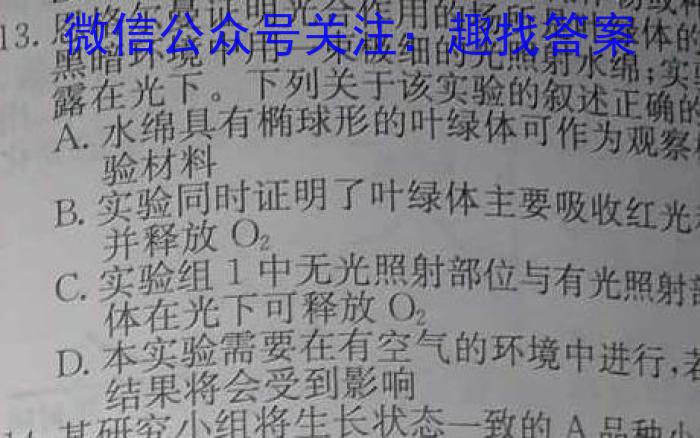 13.
微信公众号关注：趣找答案
黑暗环境中用一束极细的光照射水绵；实
露在光下。下列关于该实验的叙述正确的
A. 水绵具有椭球形的叶绿体可作为观察
验材料
B. 实验同时证明了叶绿体主要吸收红光
并释放 O₂
C. 实验组 1 中无光照射部位与有光照射
体在光下可释放 O₂
D. 本实验需要在有空气的环境中进行，若
结果将会受到影响
14. 某研究小组将生长状态一致的 A 品种小